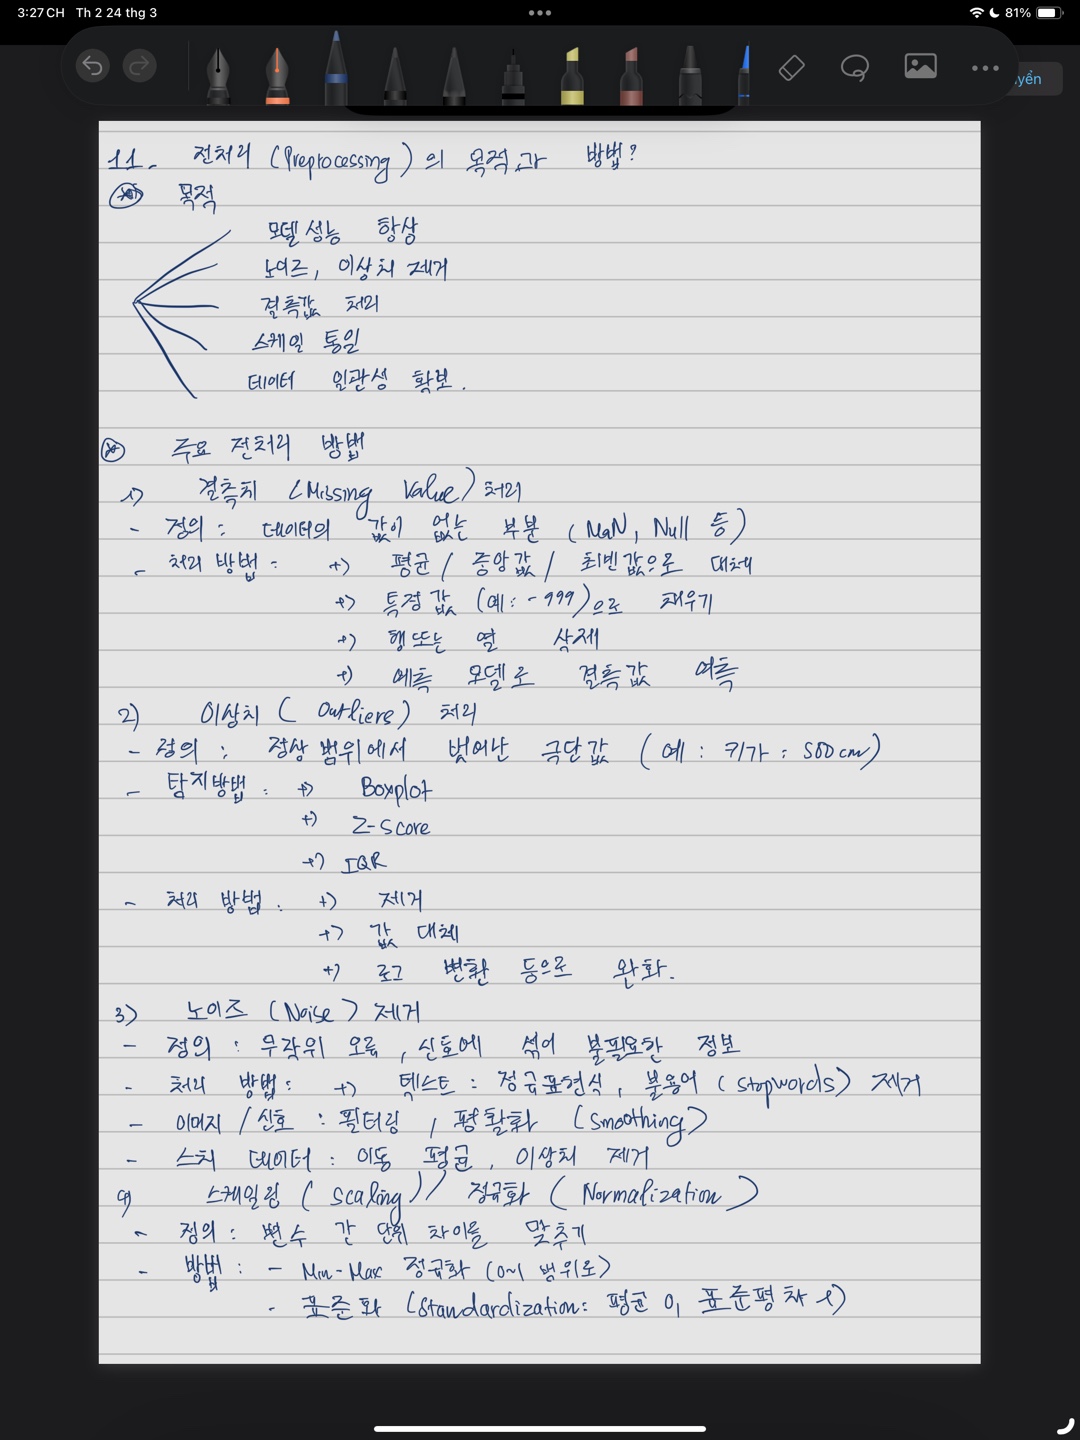 3:27 CH Th 2 24 thg 3
81%
yển
11. 전처리 (Preprocessing)의 목적과 방법?
목적
모델 성능 향상
노이즈, 이상치 제거
결측값 처리
스케일 통일
데이터 일관성 확보.
주요 전처리 방법
1) 결측치 (Missing Value) 처리
- 정의 : 데이터의 값이 없는 부분 (NaN, Null 등)
- 처리 방법 : +) 평균 / 중앙값 / 최빈값으로 대체
+) 특정 값 (예 : -999)으로 채우기
+) 행 또는 열 삭제
+) 예측 모델로 결측값 예측
2) 이상치 (Outliers) 처리
- 정의 : 정상 범위에서 벗어난 극단값 (예 : 키가 : 500cm)
- 탐지방법 : +) Boxplot
+) Z-Score
+) IQR
- 처리 방법 : +) 제거
+) 값 대체
+) 로그 변환 등으로 완화.
3) 노이즈 (Noise) 제거
- 정의 : 무작위 오류, 신호에 섞여 불필요한 정보
- 처리 방법 : +) 텍스트 : 정규표현식, 불용어 (stopwords) 제거
- 이미지 / 신호 : 필터링, 평활화 (Smoothing)
- 수치 데이터 : 이동 평균, 이상치 제거
4) 스케일링 (Scaling) / 정규화 (Normalization)
- 정의 : 변수 간 단위 차이를 맞추기
- 방법 : - Min-Max 정규화 (0~1 범위로)
- 표준화 (Standardization : 평균 0, 표준편차 1)